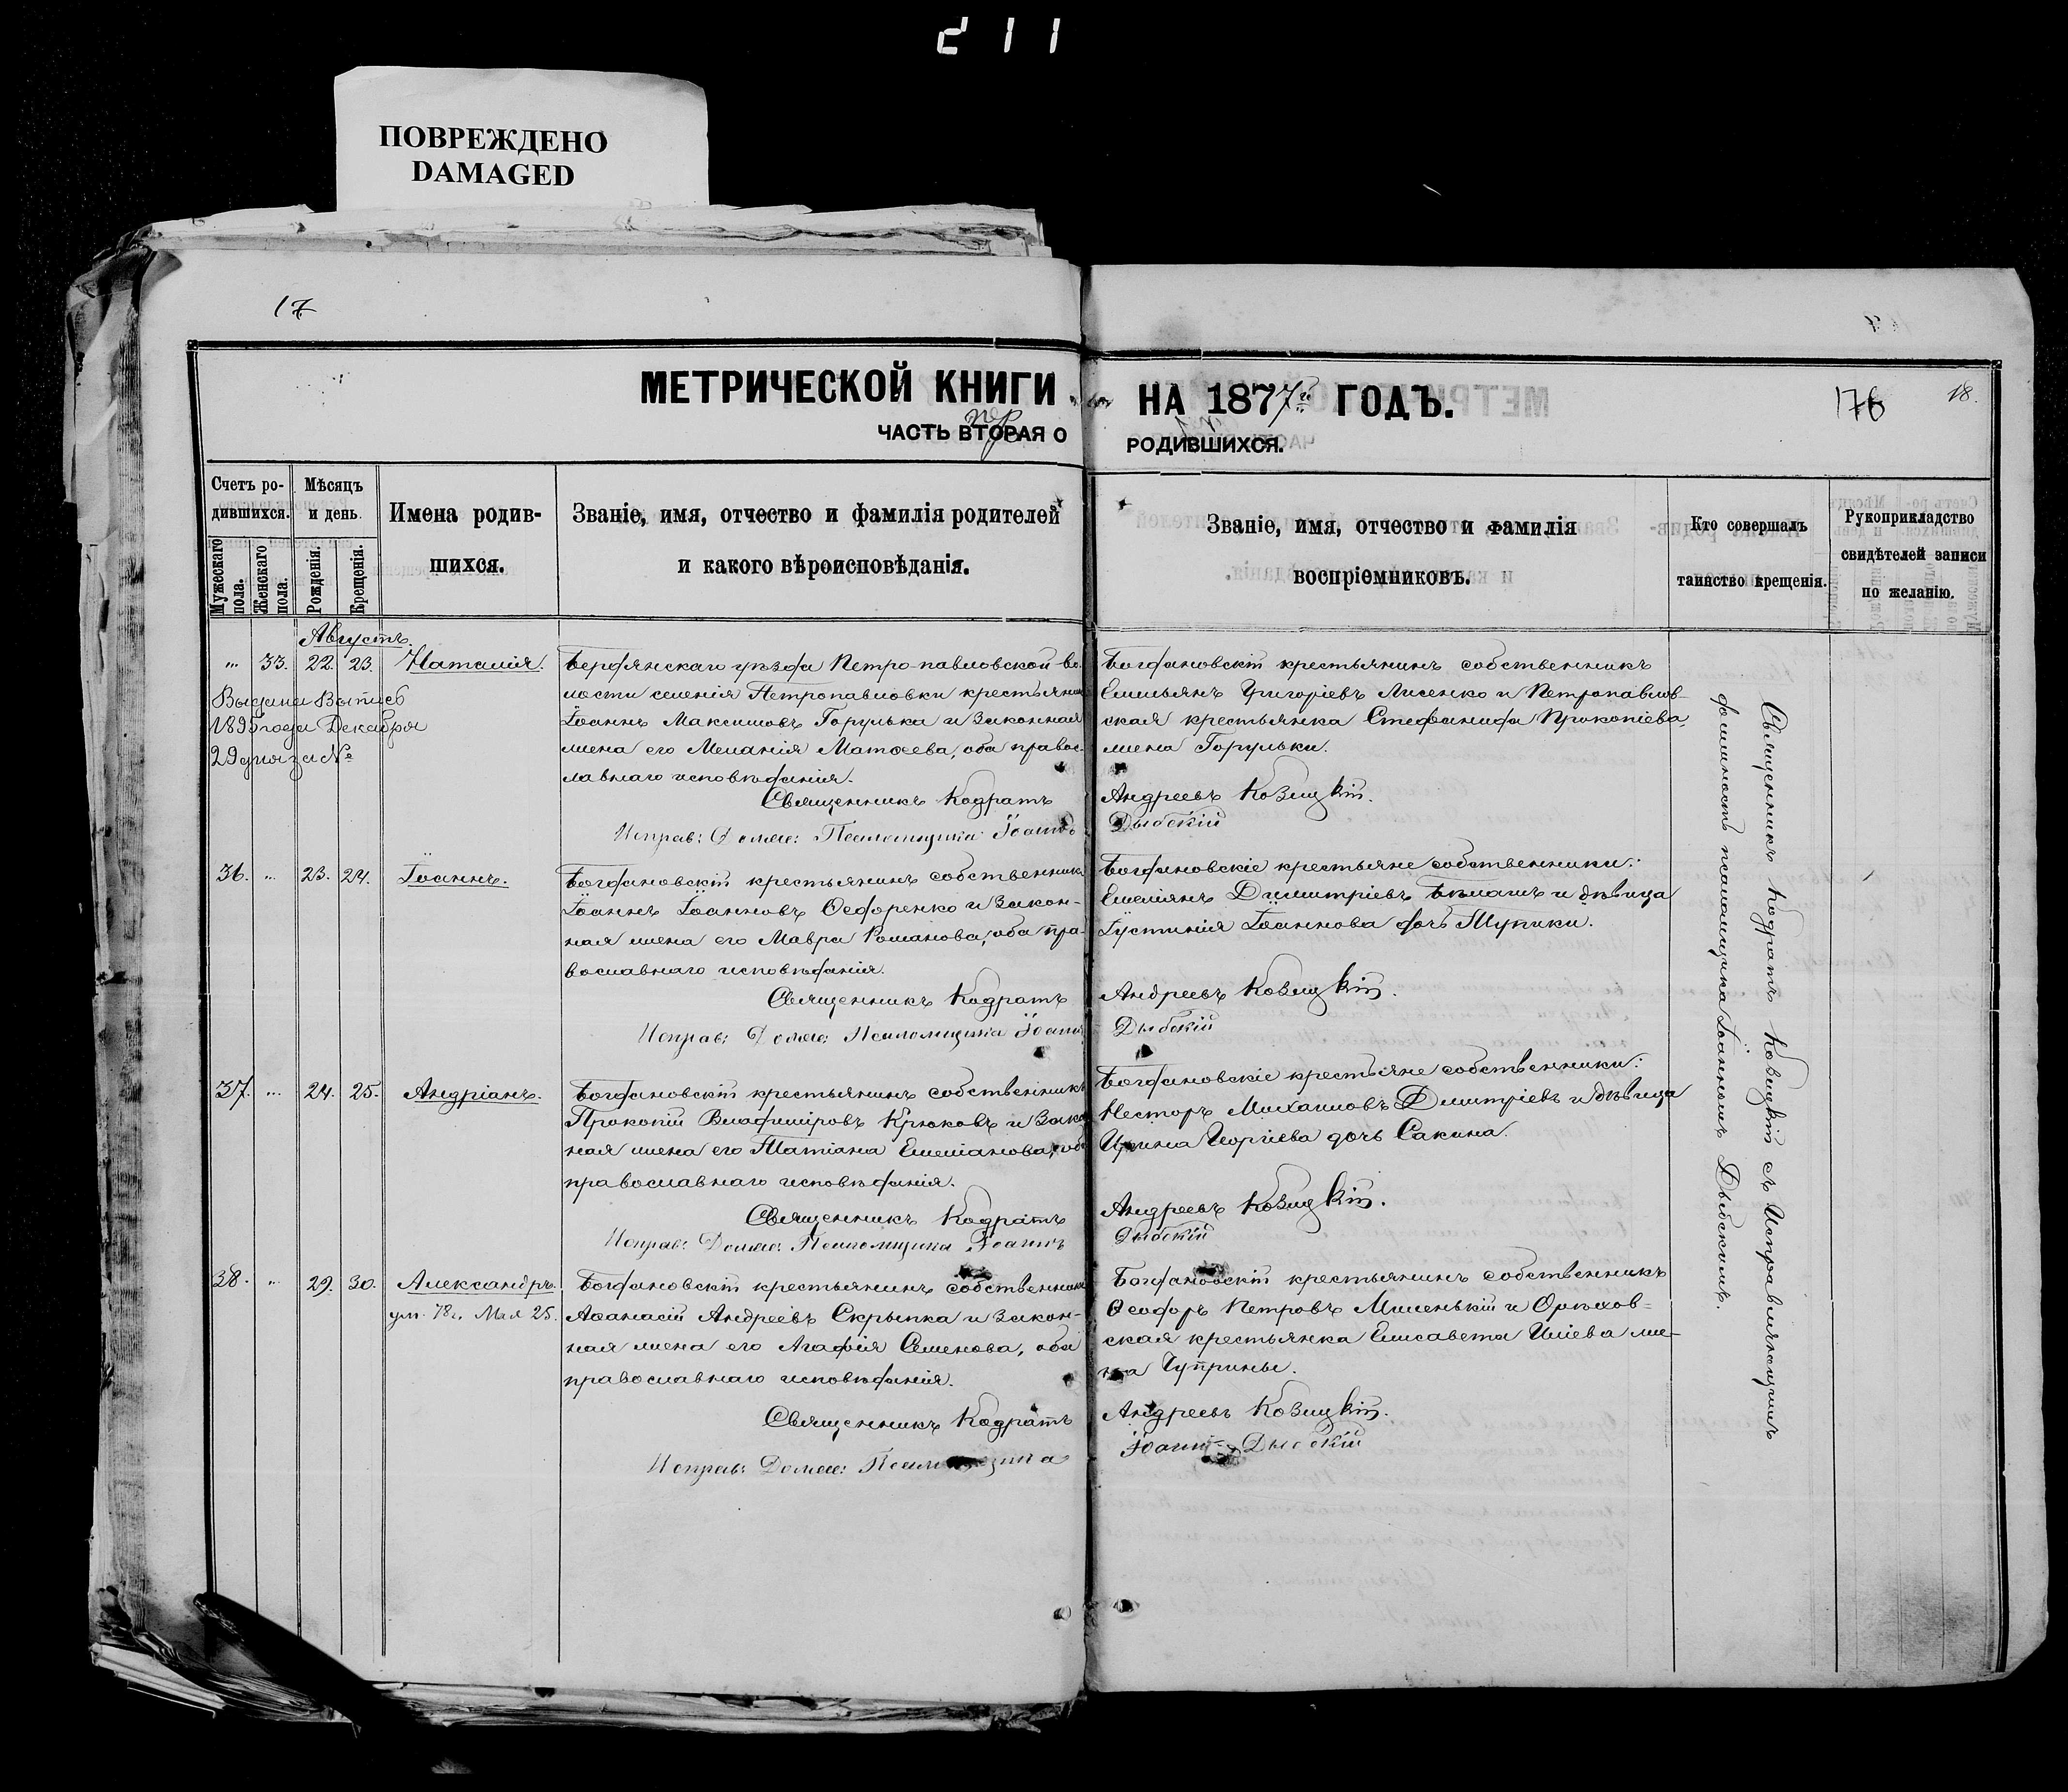 211
ПОВРЕЖДЕНО
DAMAGED
17
МЕТРИЧЕСКОЙ КНИГИ НА 1877 ГОДЪ.
176
18.
ЧАСТЬ ВТОРАЯ О РОДИВШИХСЯ.
Счетъ ро-
дившихся.
Мужескаго пола.
Женскаго пола.
Мѣсяцъ
и день.
Рожденія.
Крещенія.
Имена родив-
шихся.
Званіе, имя, отчество и фамилія родителей
и какого вѣроисповѣданія.
Званіе, имя, отчество и фамилія
воспріемниковъ.
Кто совершалъ
таинство крещенія.
Рукоприкладство
свидѣтелей записи
по желанію.
Августъ
" 33. 22. 23. Наталія.
Выдана Выпись
1895 года Декабря
29 дня за №
Бердянскаго уѣзда Петро-павловской во-
лости селенія Петропавловки крестьянинъ
Іоаннъ Максимовъ Горулька и законная
жена его Меланія Матѳеева, оба правос-
лавнаго исповѣданія.
Священникъ Кодратъ
Исправ: Долж: Псаломщика Іоаннъ
Богдановскій крестьянинъ собственникъ
Емельянъ Григоріевъ Лисенко и Петропавлов-
ская крестьянка Стефанида Прокопіева
жена Горульки.
Андреевъ Козицкій.
Дыбскій
36. " 23. 24. Іоаннъ.
Богдановскій крестьянинъ собственникъ
Іоаннъ Іоанновъ Ѳедоренко и закон-
ная жена его Мавра Романова, оба пра-
вославнаго исповѣданія.
Священникъ Кодратъ
Исправ: Долж: Псаломщика Іоаннъ
Богдановскіе крестьяне собственники:
Емеліянъ Димитріевъ и дѣвица
Іустинія Іоаннова дочь
Андреевъ Козицкій.
Дыбскій
37. " 24. 25. Андріанъ.
Богдановскій крестьянинъ собственникъ
Прокопій Владиміровъ Крюковъ и закон
ная жена его Татіана Емеліанова, оба
православнаго исповѣданія.
Священникъ Кодратъ
Исправ: Долж: Псаломщика Іоаннъ
Богдановскіе крестьяне собственники:
Несторъ Михаиловъ Димитріевъ и дѣвица
Ирина Георгіева дочь Сакина.
Андреевъ Козицкій.
Дыбскій
38. " 29. 30. Александръ.
ум. 78 г. Мая 25.
Богдановскій крестьянинъ собственникъ
Аѳанасій Андреевъ Скрыпка и закон-
ная жена его Агафія Семенова, оба
православнаго исповѣданія.
Священникъ Кодратъ
Исправ: Долж: Псаломщика
Богдановскій крестьянинъ собственникъ
Ѳеодоръ Петровъ Миленькій и Орѣхов-
ская крестьянка Елисавета Иліева же-
на Чуприны.
Андреевъ Козицкій.
Іоаннъ Дыбскій
Священникъ Кодратъ Козицкій съ Исправляющимъ
должность псаломщика Іоанномъ Дыбскимъ.